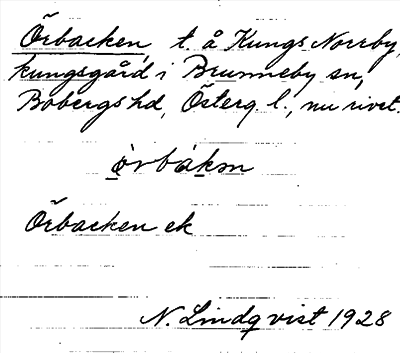 Örbacken, t. å Kungs Norrby,
kungsgård i Brunneby sn,
Bobergs hd, Österg. l., nu rivet.
ö̀rbákm
Örbacken ek
N. Lindqvist 1928